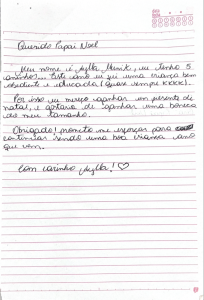 Querido Papai Noel
Meu nome é Aylla Marik, eu tenho 5
aninhos... Este ano eu fui uma criança bem
obediente e educada (quase sempre KKKK).
Por isso eu mereço ganhar um presente de
natal, e gostaria de ganhar uma boneca
do meu tamanho.
Obrigada! prometo me esforçar para
continuar sendo uma boa criança ano
que vem.
Com carinho, Aylla! ♡